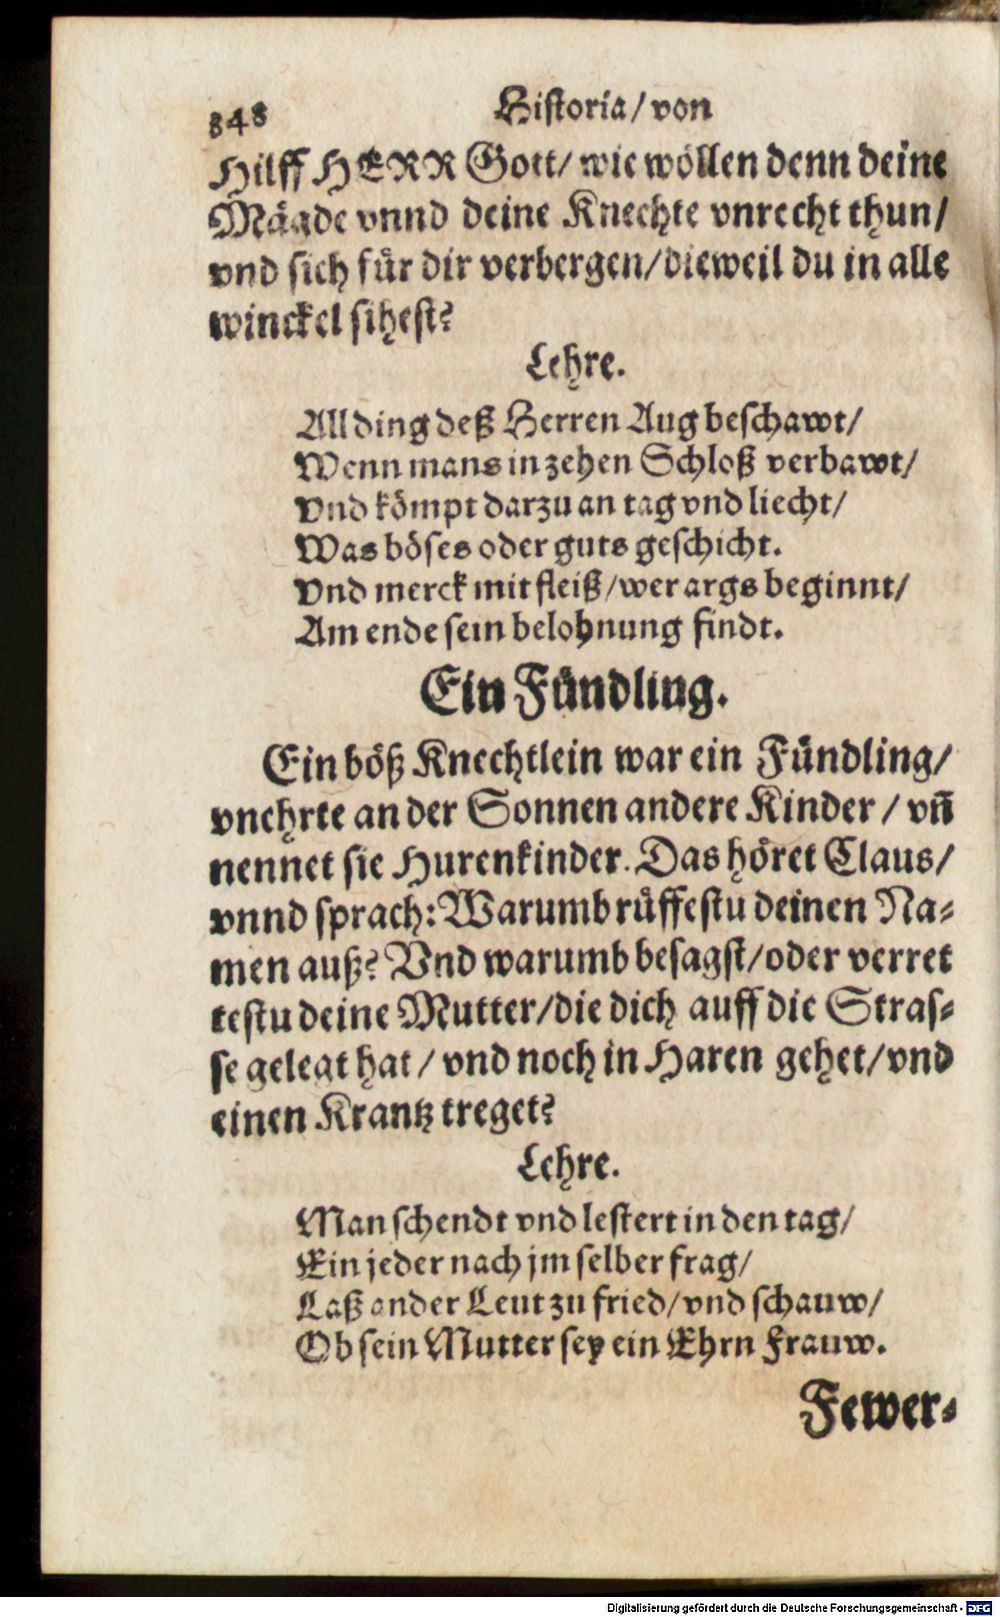 348 Historia/ von
Hilff HERR Gott/ wie wöllen denn deine
Mägde vnnd deine Knechte vnrecht thun/
vnd sich für dir verbergen/dieweil du in alle
winckel sihest?
Lehre.
All ding deß Herren Aug beschawt/
Wenn mans in zehen Schloß verbawt/
Vnd kömpt darzu an tag vnd liecht/
Was böses oder guts geschicht.
Vnd merck mit fleiß/wer args beginnt/
Am ende sein belohnung findt.
Ein Fündling.
Ein böß Knechtlein war ein Fündling/
vnehrte an der Sonnen andere Kinder / vñ
nennet sie Hurenkinder. Das höret Claus/
vnnd sprach: Warumb rüffestu deinen Na-
men auß? Vnd warumb besagst/oder verret
testu deine Mutter/die dich auff die Stras-
se gelegt hat / vnd noch in Haren gehet/vnd
einen Krantz treget?
Lehre.
Man schendt vnd lestert in den tag/
Ein jeder nach jm selber frag/
Laß ander Leut zu fried/vnd schauw/
Ob sein Mutter sey ein Ehrn Frauw.
Fewer-
Digitalisierung gefördert durch die Deutsche Forschungsgemeinschaft - DFG